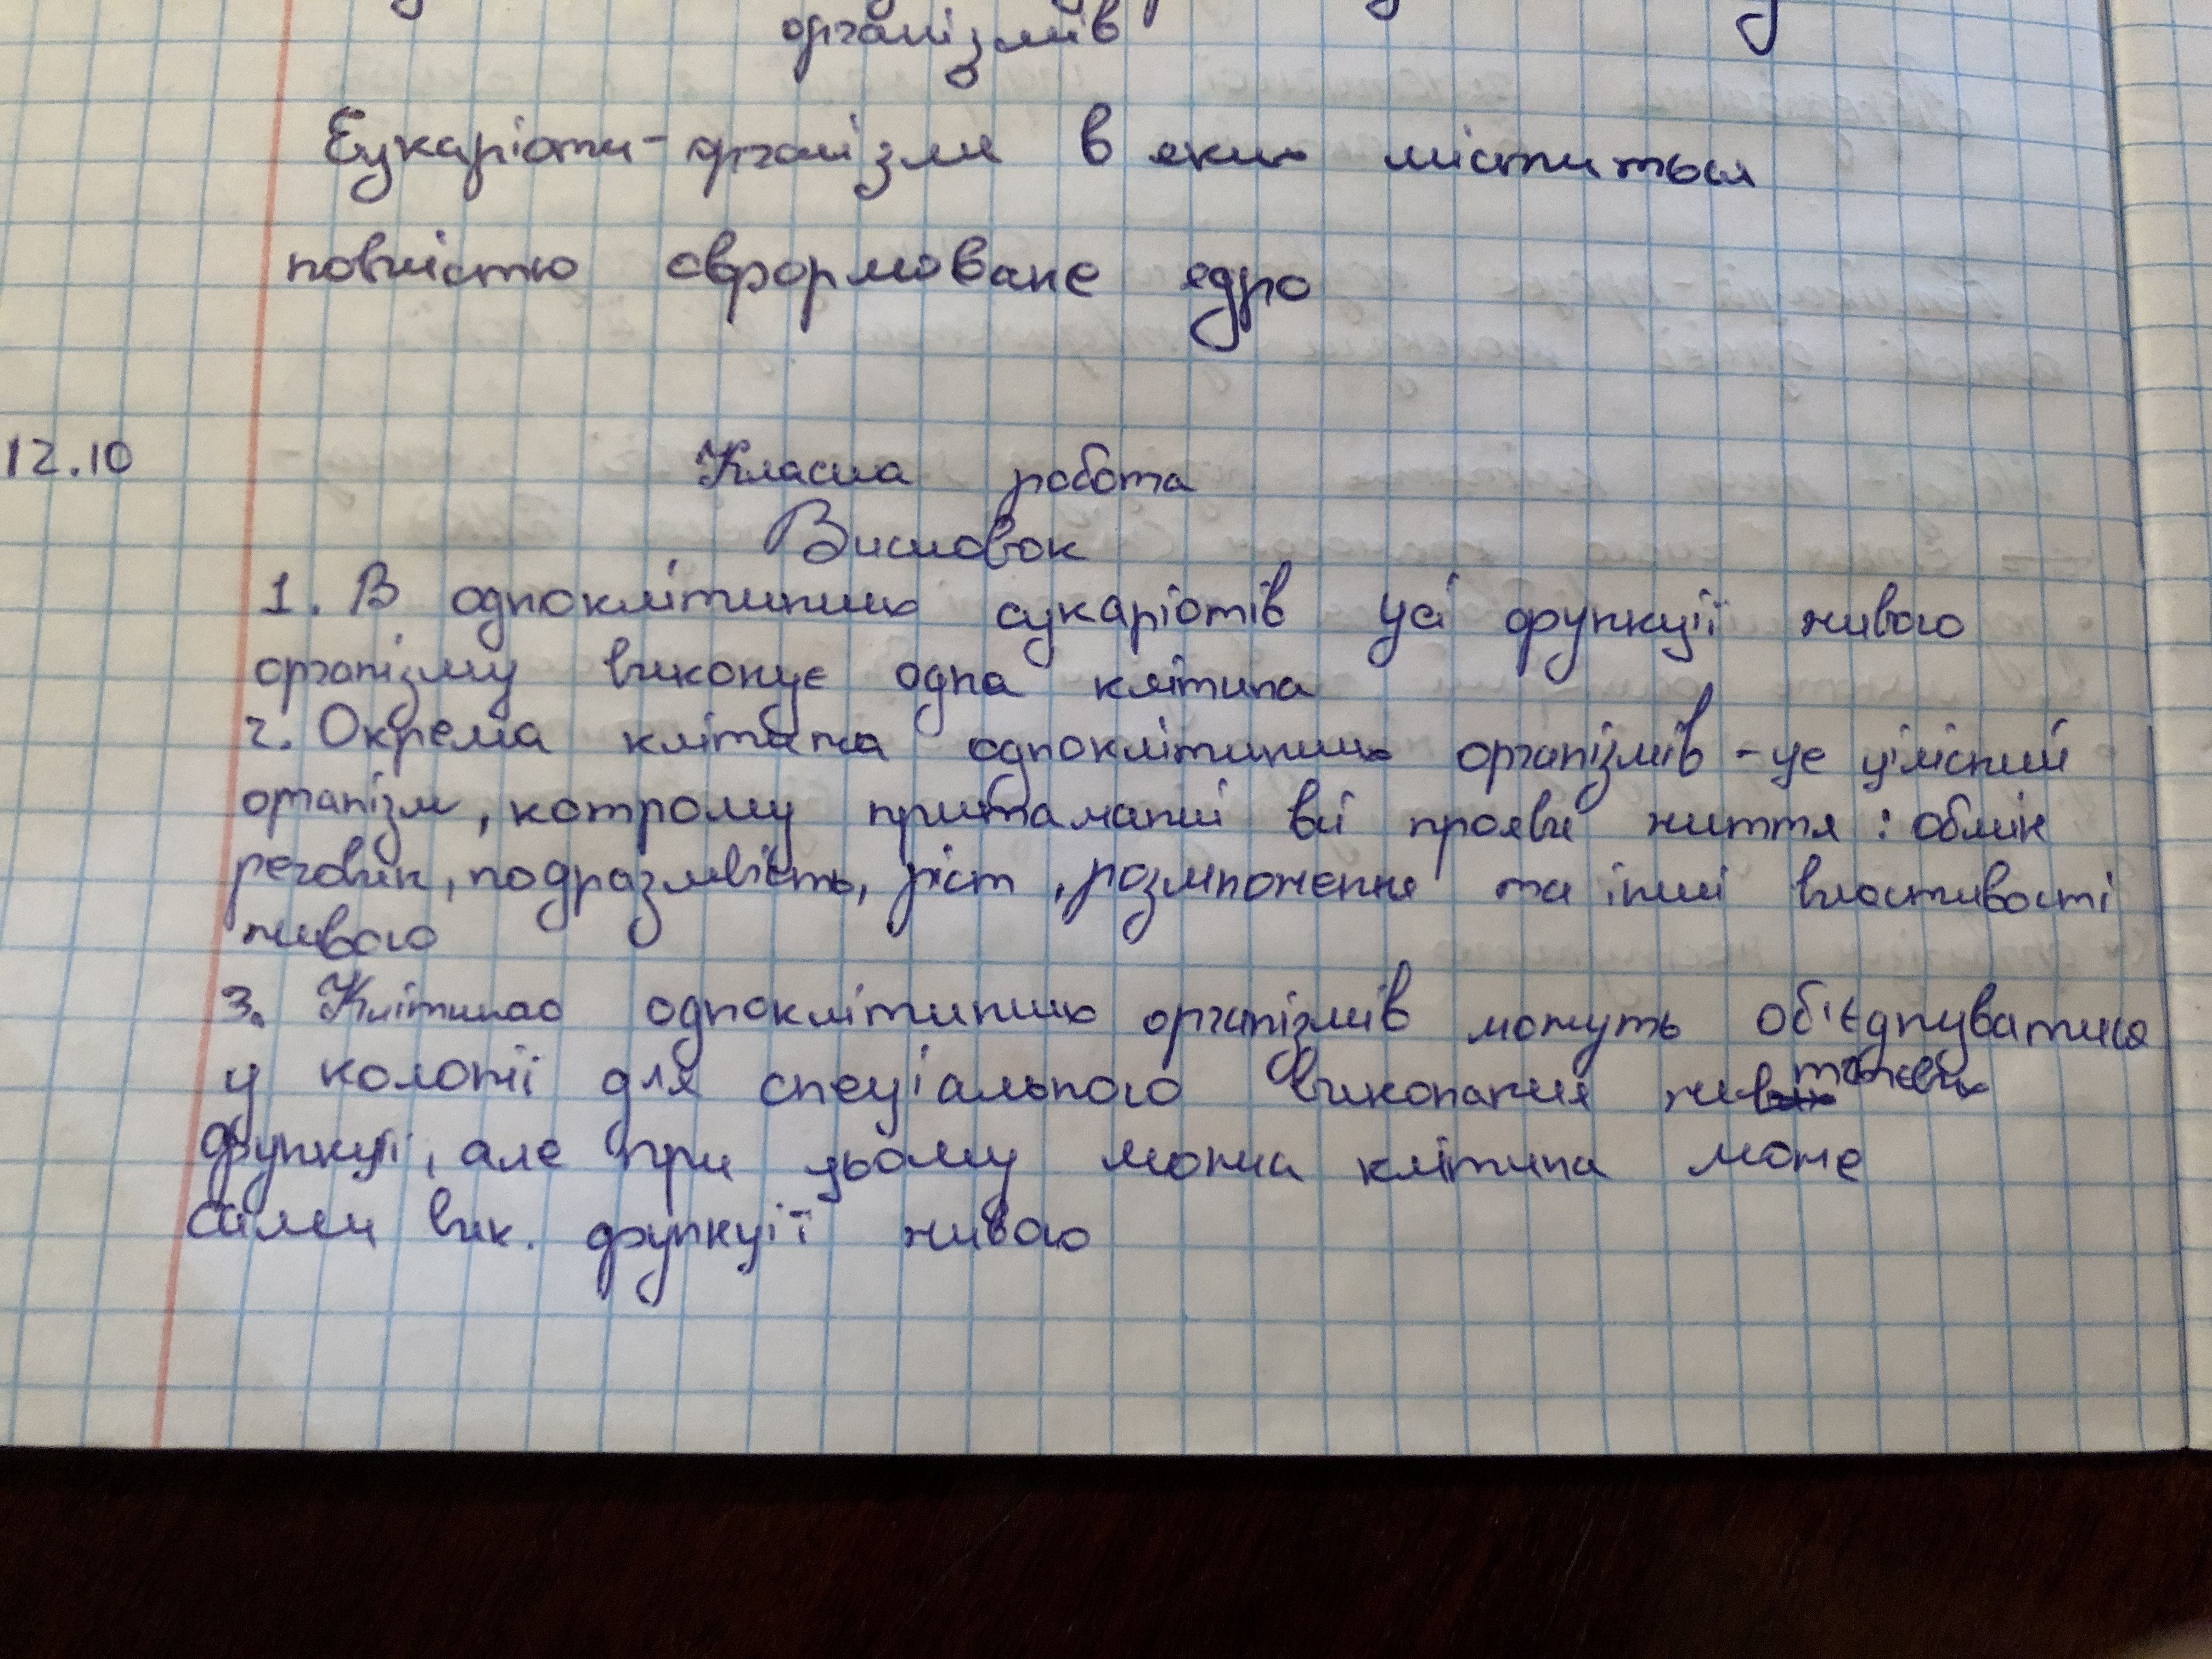 організмів
Еукаріоти - організми в яких міститься
повністю сформоване ядро
12.10 Класна робота
Висновок
1. В одноклітинних еукаріотів усі функції живого
організму виконує одна клітина
2. Окрема клітина одноклітинних організмів - це цілісний
організм, котрому притаманні всі прояви життя: обмін
речовин, подразливість, ріст, розмноження та інші властивості
живого
3. Клітинао одноклітинних організмів можуть об'єднуватися
у колонії для спеціального виконання життєвих
функцій, але при цьому кожна клітина може
сама вик. функції живого